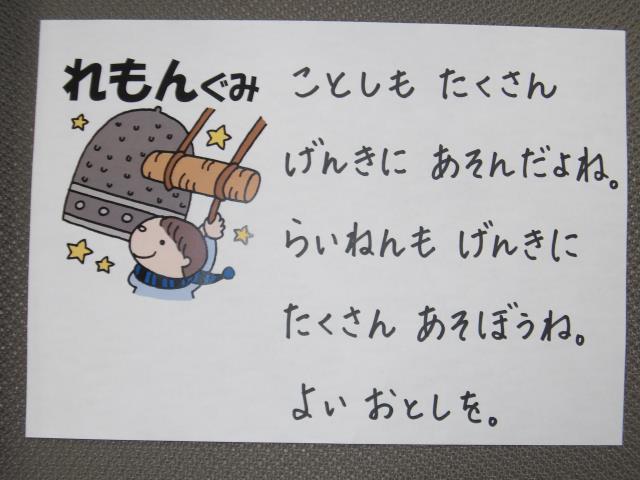 れもんぐみ
ことしも たくさん
げんきに あそんだよね。
らいねんも げんきに
たくさん あそぼうね。
よい おとしを。